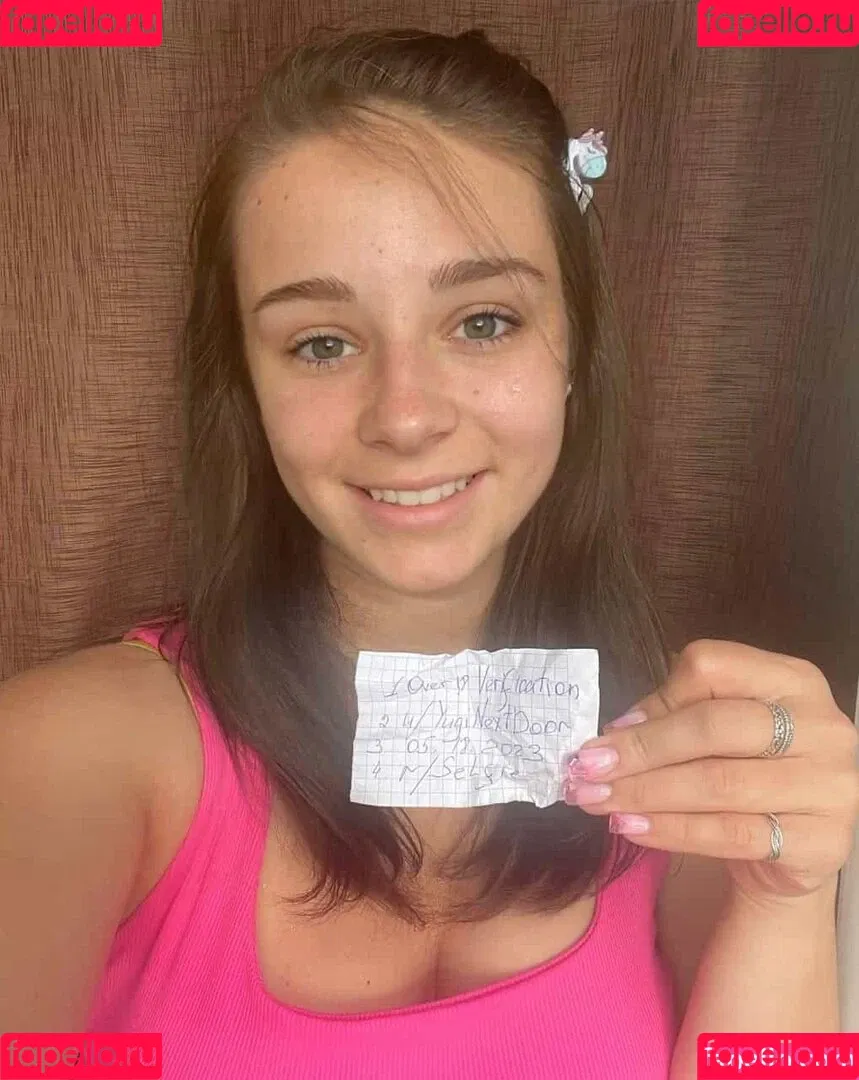 fapello.ru fapello.ru
1 Over 18 Verification
2 u/YugiNextDoor
3 05-12.2023
4 r/Selfie
fapello.ru fapello.ru